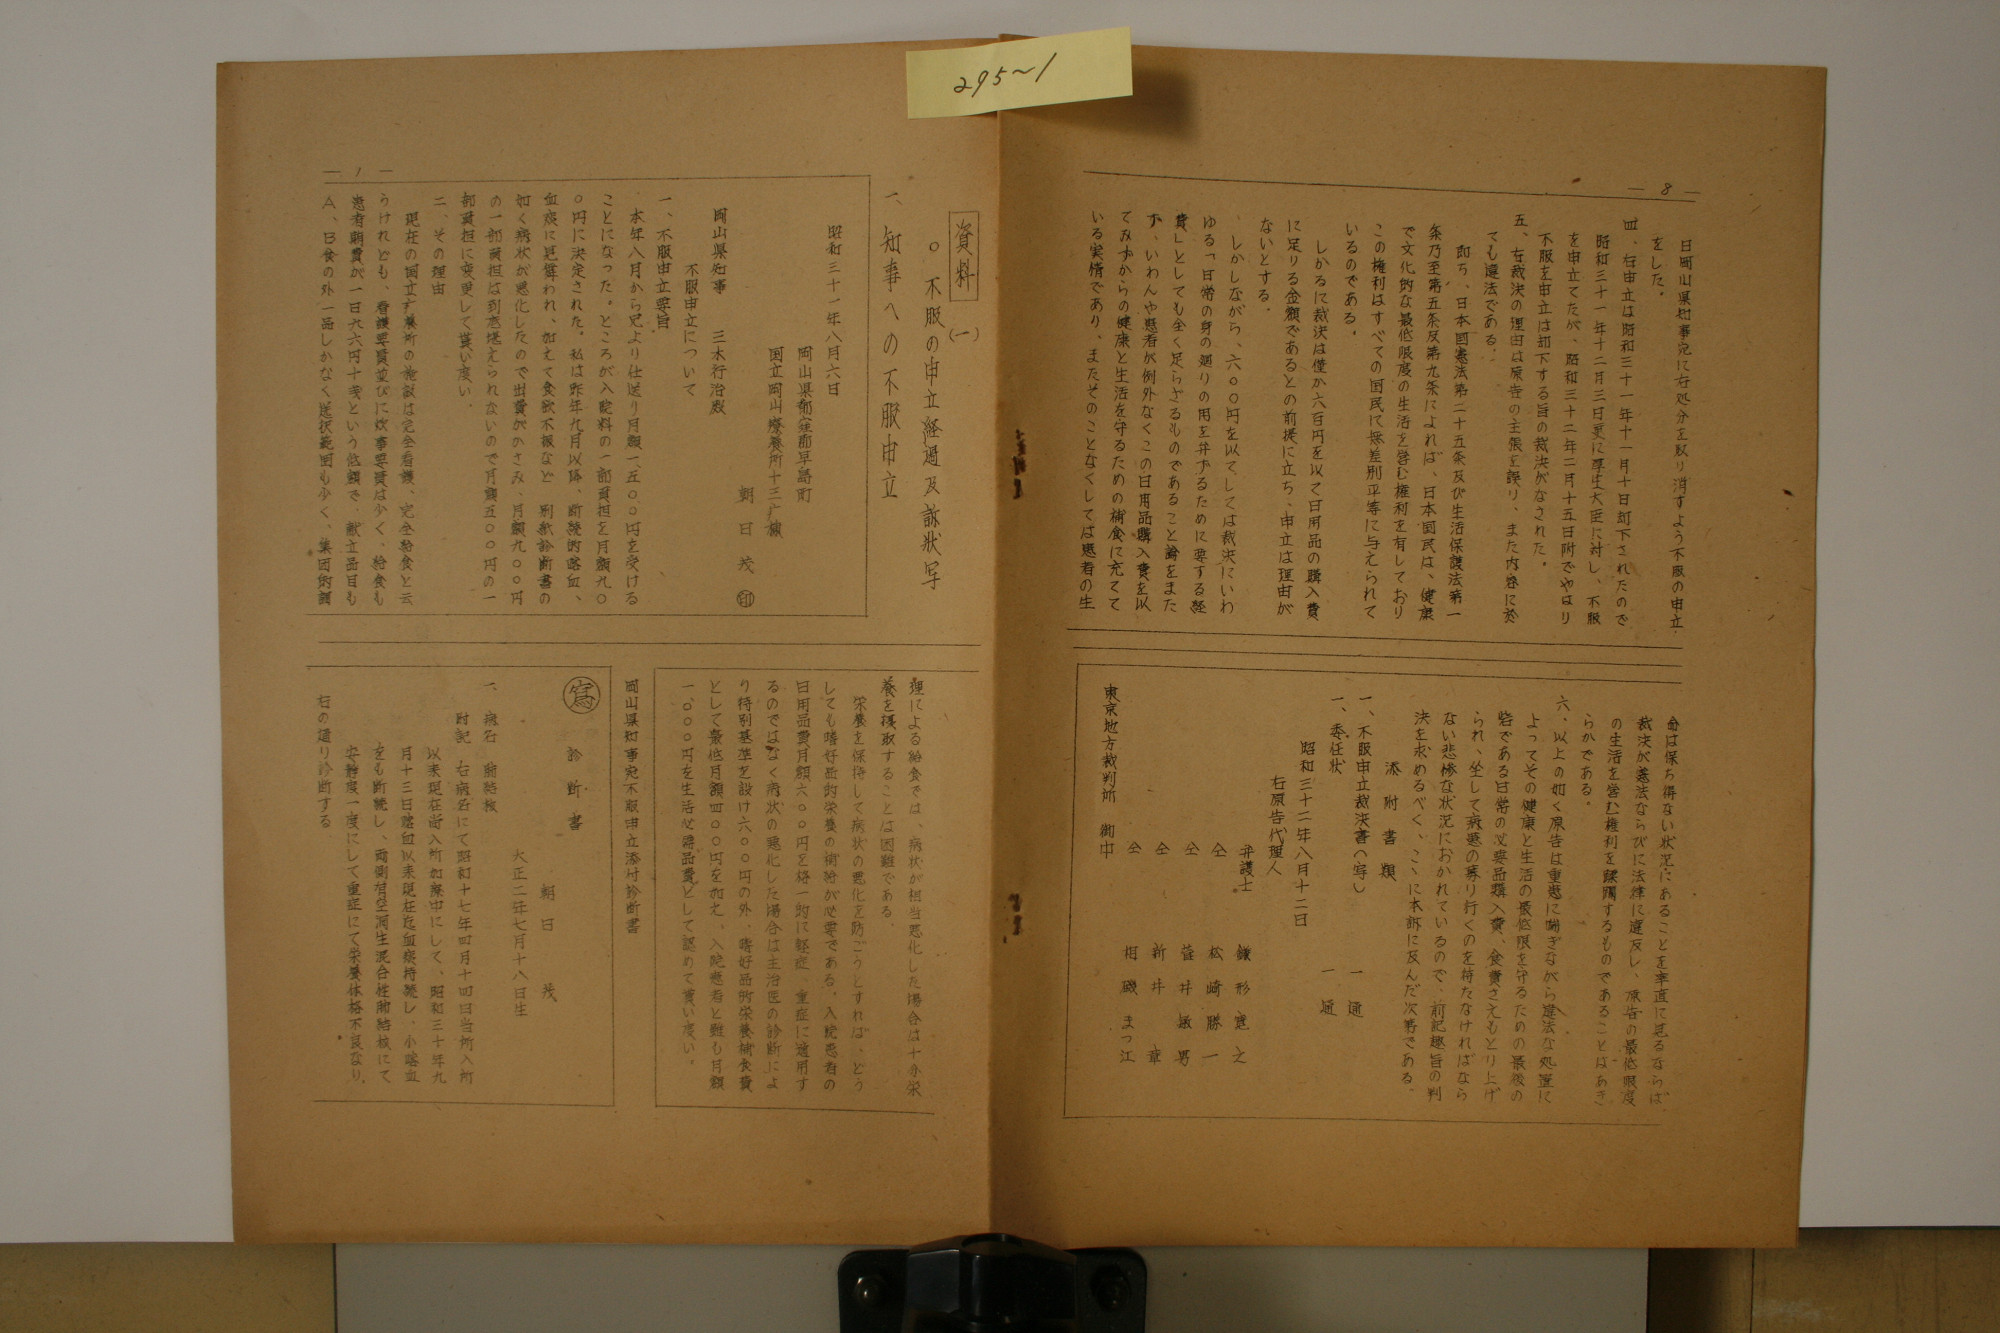 295〜1
— 8 —
日岡山県知事宛に右処分を取り消すよう不服の申立
をした。
四、右申立は昭和三十一年十一月十日却下されたので
昭和三十一年十二月三日更に厚生大臣に対し、不服
を申立てたが、昭和三十二年二月十五日附でやはり
不服を申立は却下する旨の裁決がなされた。
五、右裁決の理由は原告の主張を誤り、また内容に於
ても違法である。
即ち、日本國憲法第二十五条及び生活保護法第一
条乃至第五条反第九条によれば、日本国民は、健康
で文化的な最低限度の生活を営む権利を有しており
この権利はすべての国民に無差別平等に与えられて
いるのである。
しかるに裁決は僅か六百円を以て日用品の購入費
に足りる金額であるとの前提に立ち、申立は理由が
ないとする。
しかしながら、六〇〇円を以てしては裁決にいわ
ゆる「日常の身の廻りの用を弁ずるために要する経
費」としても全く足らざるものであること論をまた
ず、いわんや患者が例外なくこの日用品購入費を以
てみずからの健康と生活を守るための補食に充てて
いる実情であり、またそのことなくしては患者の生
命は保ち得ない状況にあることを率直に見るならば、
裁決が憲法ならびに法律に違反し、原告の最低限度
の生活を営む権利を蹂躙するものであることはあき
らかである。
六、以上の如く原告は重患に喘ぎながら違法な処置に
よってその健康と生活の最低限を守るための最後の
砦である日常の必要品購入費、食費さえもとり上げ
られ、坐して病患の募り行くのを待たなければなら
ない悲惨な状況におかれているので、前記趣旨の判
決を求めるべく、こゝに本訴に及んだ次第である。
添附書類
一、不服申立裁決書(写し 一通
一、委任状 一通
昭和三十二年八月十二日
右原告代理人
弁護士 鎌形寛之
仝 松崎勝一
仝 菅井敏男
仝 新井章
仝 相磯まつ江
東京地方裁判所 御中
資料(一)
〇不服の申立経過及訴状写
一、知事への不服申立
昭和三十一年八月六日
岡山県都窪郡早島町
国立岡山療養所十三病棟
朝日茂 ㊞
岡山県知事 三木行治殿
不服申立について
一、不服申立要旨
本年八月から兄より仕送り月額一、五〇〇円を受ける
ことになった。ところが入院料の一部負担を月額九〇
〇円に決定された。私は昨年九月以降、断続的喀血、
血痰に見舞われ、加えて食欲不振など 別紙診断書の
如く病状が悪化したので出費がかさみ、月額九〇〇円
の一部負担は到底堪えられないので月額五〇〇円の一
部負担に変更して貰い度い。
二、その理由
現在の国立療養所の施設は完全看護、完全給食と云
うけれども、看護要員並びに炊事要員は少く、給食も
患者朝費が一日九六円十銭という低額で、献立品目も
A、B食の外一品しかなく選択範囲も少く、集団的調
— 1 —
理による給食では、病状が相当悪化した場合は十分栄
養を摂取することは困難である。
栄養を保持して病状の悪化を防ごうとすれば、どう
しても嗜好品的栄養の補給が必要である。入院患者の
日用品費月額六〇〇円を格一的に軽症、重症に適用す
るのではなく病状の悪化した場合は主治医の診断によ
り特別基準を設け六〇〇円の外、嗜好品的栄養補食費
として最低月額四〇〇円を加え、入院患者と雖も月額
一、〇〇〇円を生活必需品費として認めて貰い度い。
岡山県知事宛不服申立添付診断書
㊢ 診断書
朝日茂
大正二年七月十八日生
一、病名 肺結核
附記 右病名にて昭和十七年四月十四日当所入所
以来現在尚入所加療中にして、昭和三十年九
月十三日喀血以来現在迄血痰持続し、小喀血
をも断続し、両側有空洞生混合性肺結核にて
安静度一度にして重症にて栄養体格不良なり。
右の通り診断する